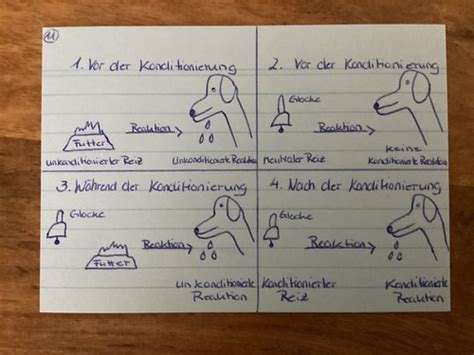 11
1. Vor der Konditionierung
Futter
Reaktion
unkonditionierter Reiz
Unkonditionierte Reaktion
2. Vor der Konditionierung
Glocke
Reaktion
neutraler Reiz
keine
Konditionierte Reaktion
3. Während der Konditionierung
Glocke
Futter
Reaktion
unkonditionierte
Reaktion
4. Nach der Konditionierung
Glocke
Reaktion
Konditionierter
Reiz
Konditionierte
Reaktion